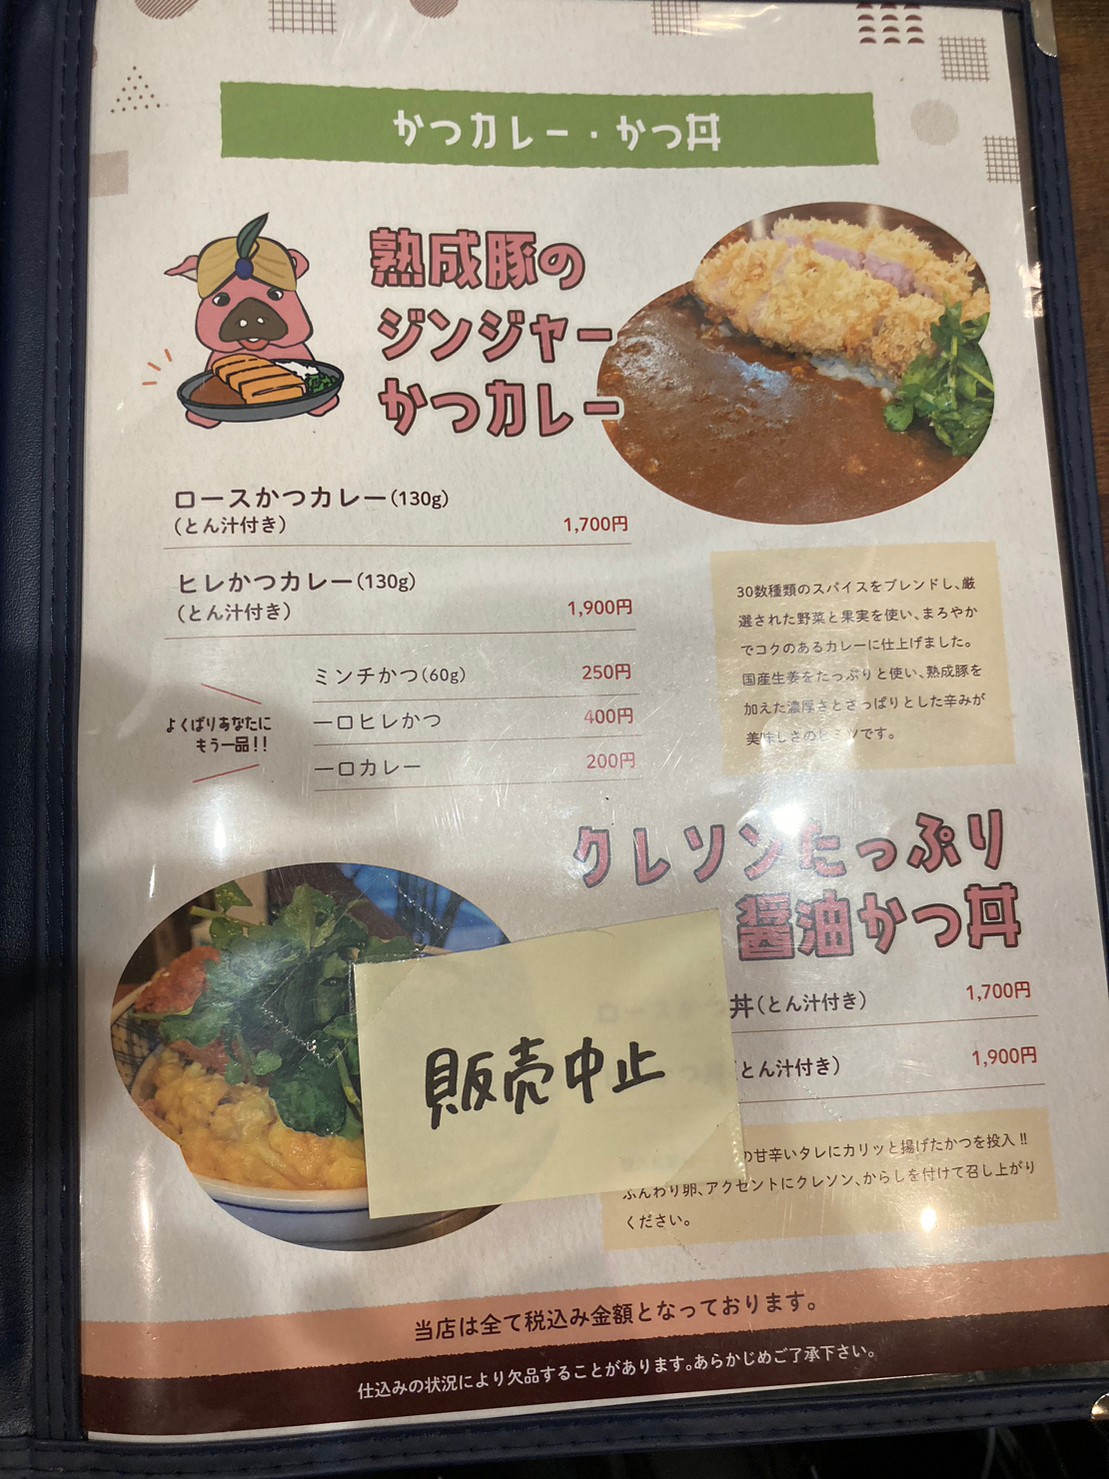 かつカレー・かつ丼
熟成豚の
ジンジャー
かつカレー
ロースかつカレー(130g)
(とん汁付き) 1,700円
ヒレかつカレー(130g)
(とん汁付き) 1,900円
よくばりあなたに
もう一品!!
ミンチかつ(60g) 250円
一口ヒレかつ 400円
一口カレー 200円
30数種類のスパイスをブレンドし、厳
選された野菜と果実を使い、まろやか
でコクのあるカレーに仕上げました。
国産生姜をたっぷりと使い、熟成豚を
加えた濃厚さとさっぱりとした辛みが
美味しさのヒミツです。
クレソンたっぷり
醤油かつ丼
丼(とん汁付き) 1,700円
(とん汁付き) 1,900円
販売中止
の甘辛いタレにカリッと揚げたかつを投入!!
ふんわり卵、アクセントにクレソン、からしを付けて召し上がり
ください。
当店は全て税込み金額となっております。
仕込みの状況により欠品することがあります。あらかじめご了承下さい。